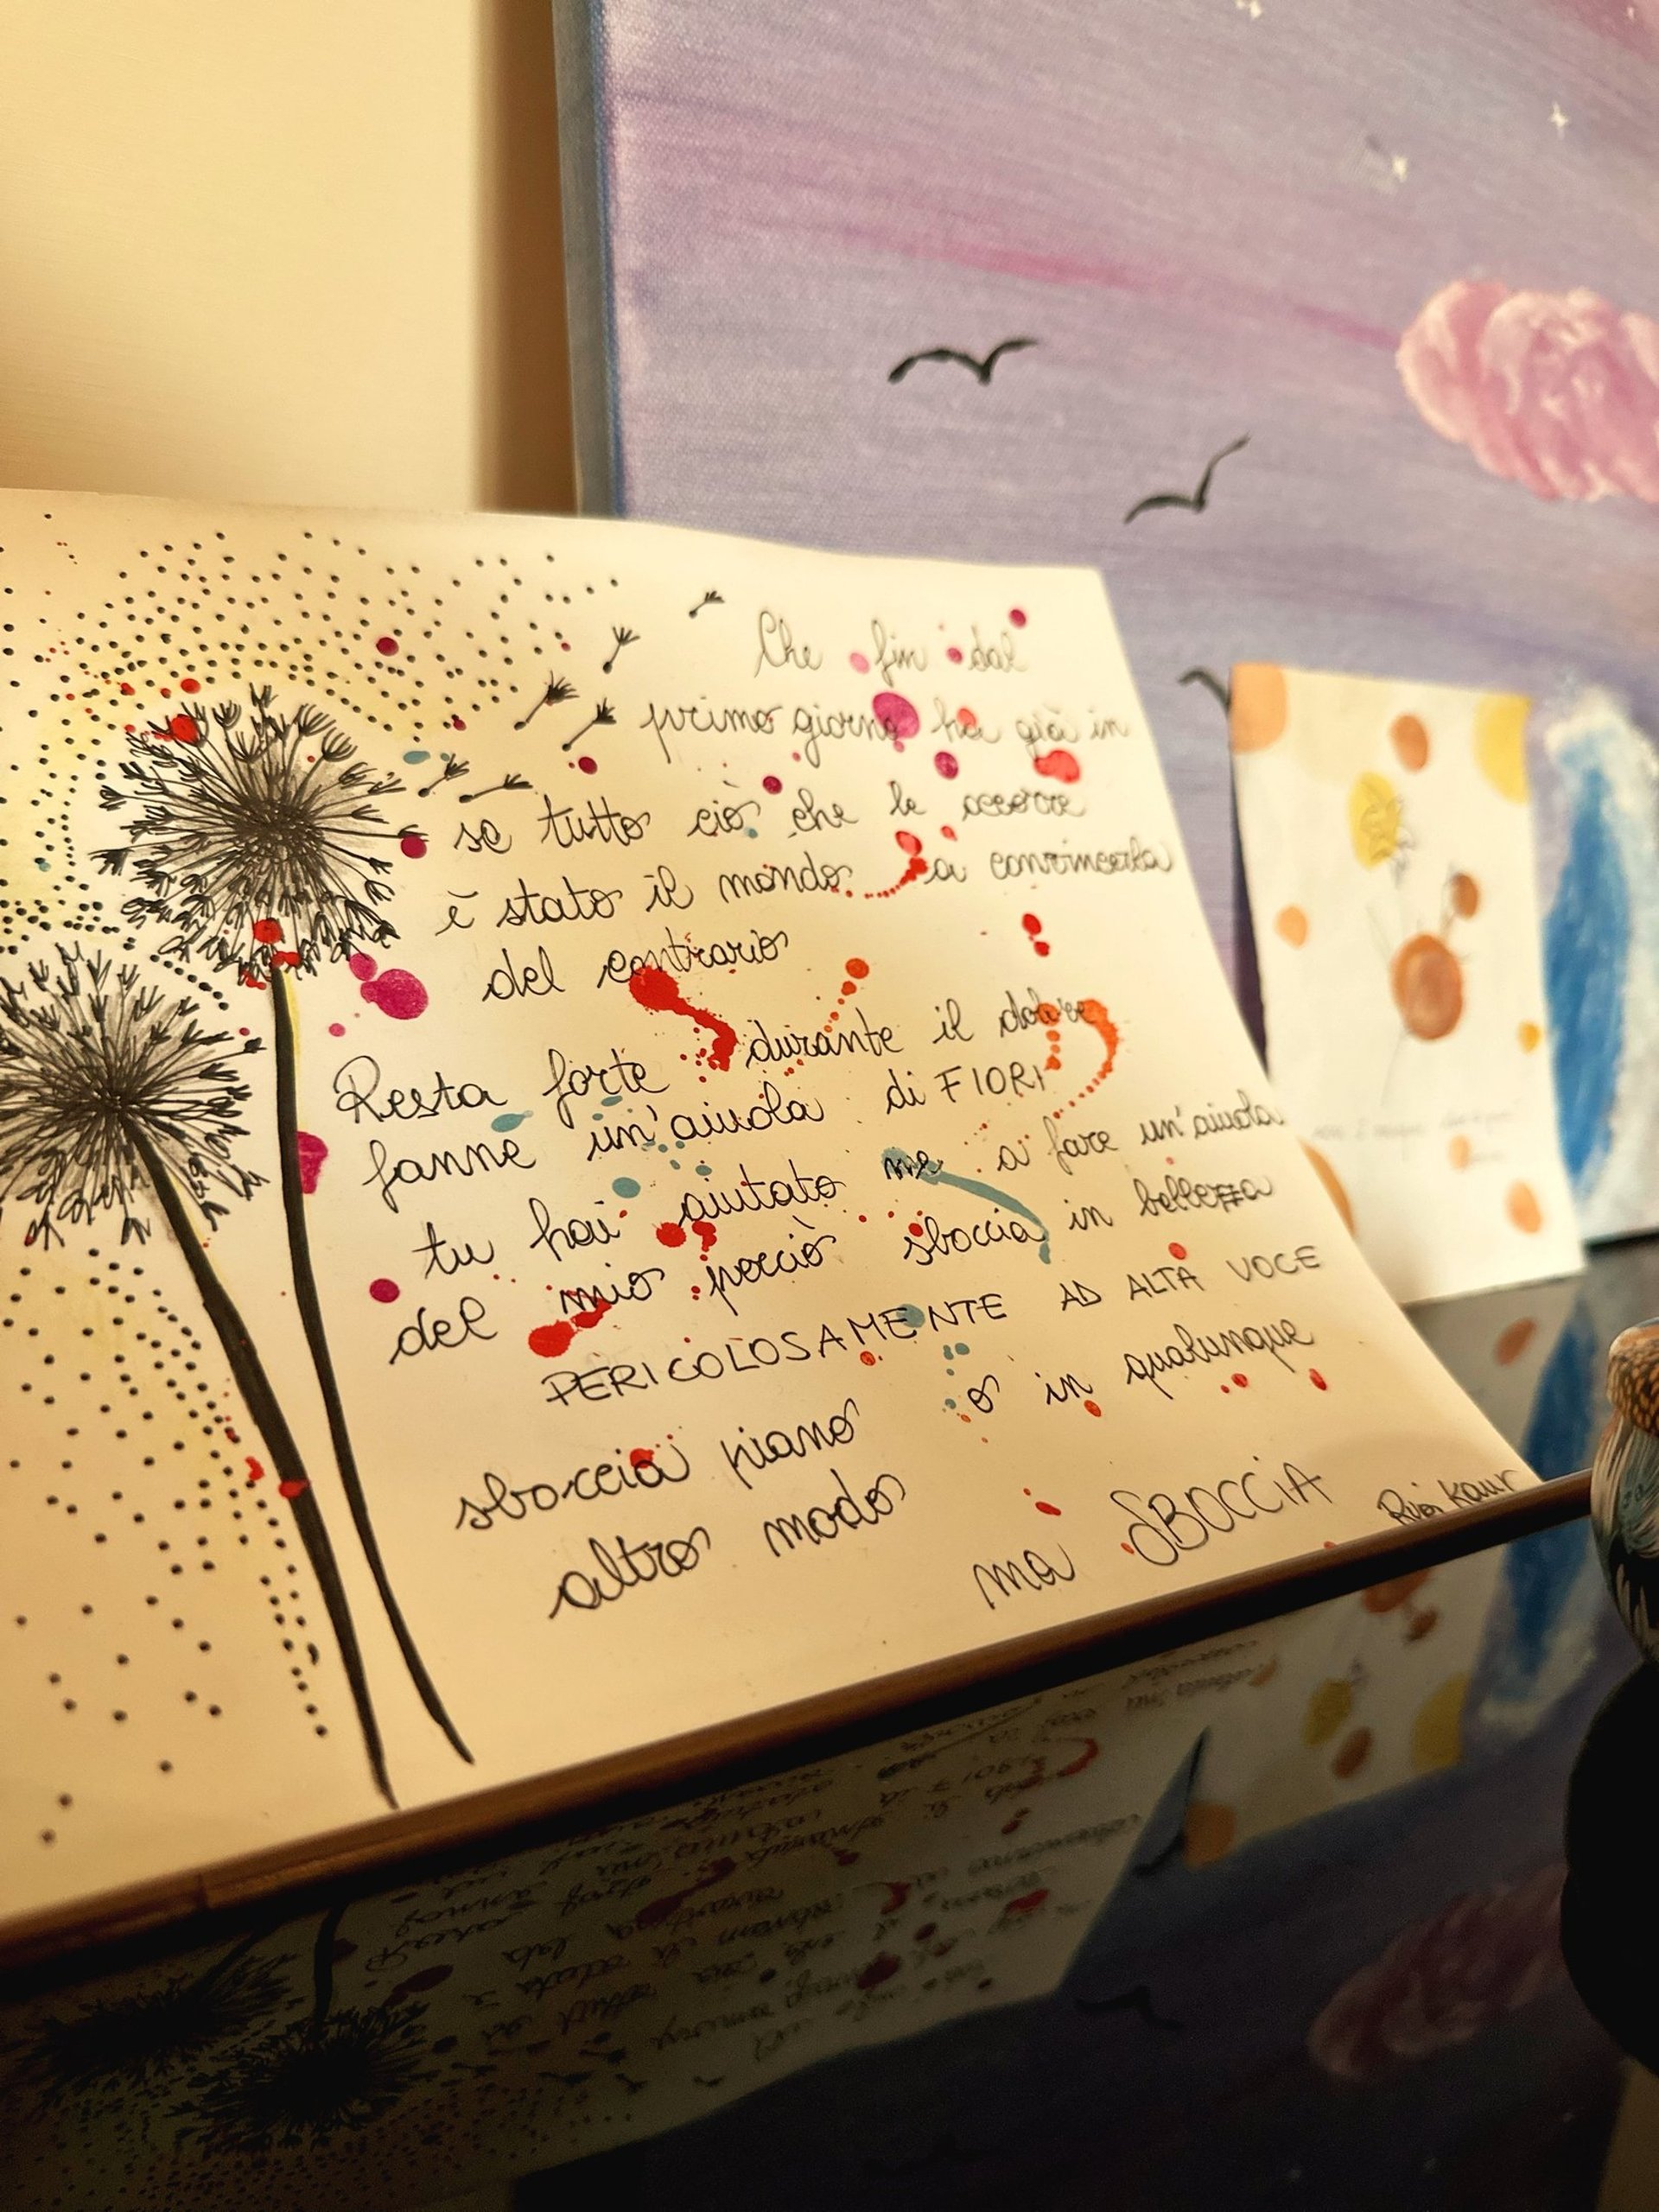 Che fin dal
primo giorno ha già in
se tutto ciò che le occorre
è stato il mondo a convincerla
del contrario
Resta forte durante il dolore
fanne un'aiuola di FIORI
tu hai aiutato me a fare un'aiuola
del mio perciò sboccia in bellezza
PERICOLOSAMENTE AD ALTA VOCE
sboccia piano o in qualunque
altro modo
ma SBOCCIA
Rupi Kaur